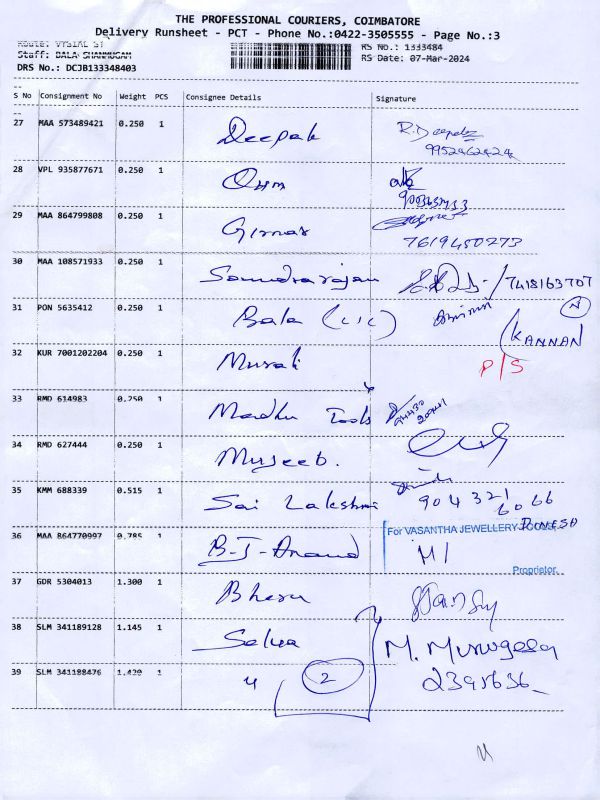 THE PROFESSIONAL COURIERS, COIMBATORE
Delivery Runsheet - PCT - Phone No.:0422-3505555 - Page No.:3
Staff: BALA SHANMUGAM
RS No.: 1333484
DRS No.: DCJB133348403
RS Date: 07-Mar-2024
S No Consignment No Weight PCS Consignee Details Signature
27 MAA 573489421 0.250 1 Deepak R.Deepak
28 VPL 935877671 0.250 1 Ohm
29 MAA 864799808 0.250 1 Girnar
7619450273
30 MAA 108571933 0.250 1 Soundrarajan /7418163707
31 PON 5635412 0.250 1 Bala (LIC)
(KANNAN
32 KUR 7001202204 0.250 1 Murali P/S
33 RMD 614983 0.250 1 Madhu Tools
34 RMD 627444 0.250 1 Mujeeb.
35 KMM 688339 0.515 1 Sai Lakshmi 904321
6066
36 MAA 864770997 0.785 1 B-J-Anand For VASANTHA JEWELLERY TOOLS, DINESH
Proprietor.
37 GDR 5304013 1.300 1
38 SLM 341189128 1.145 1 Selva M. Murugesan
39 SLM 341188476 1.420 1 2